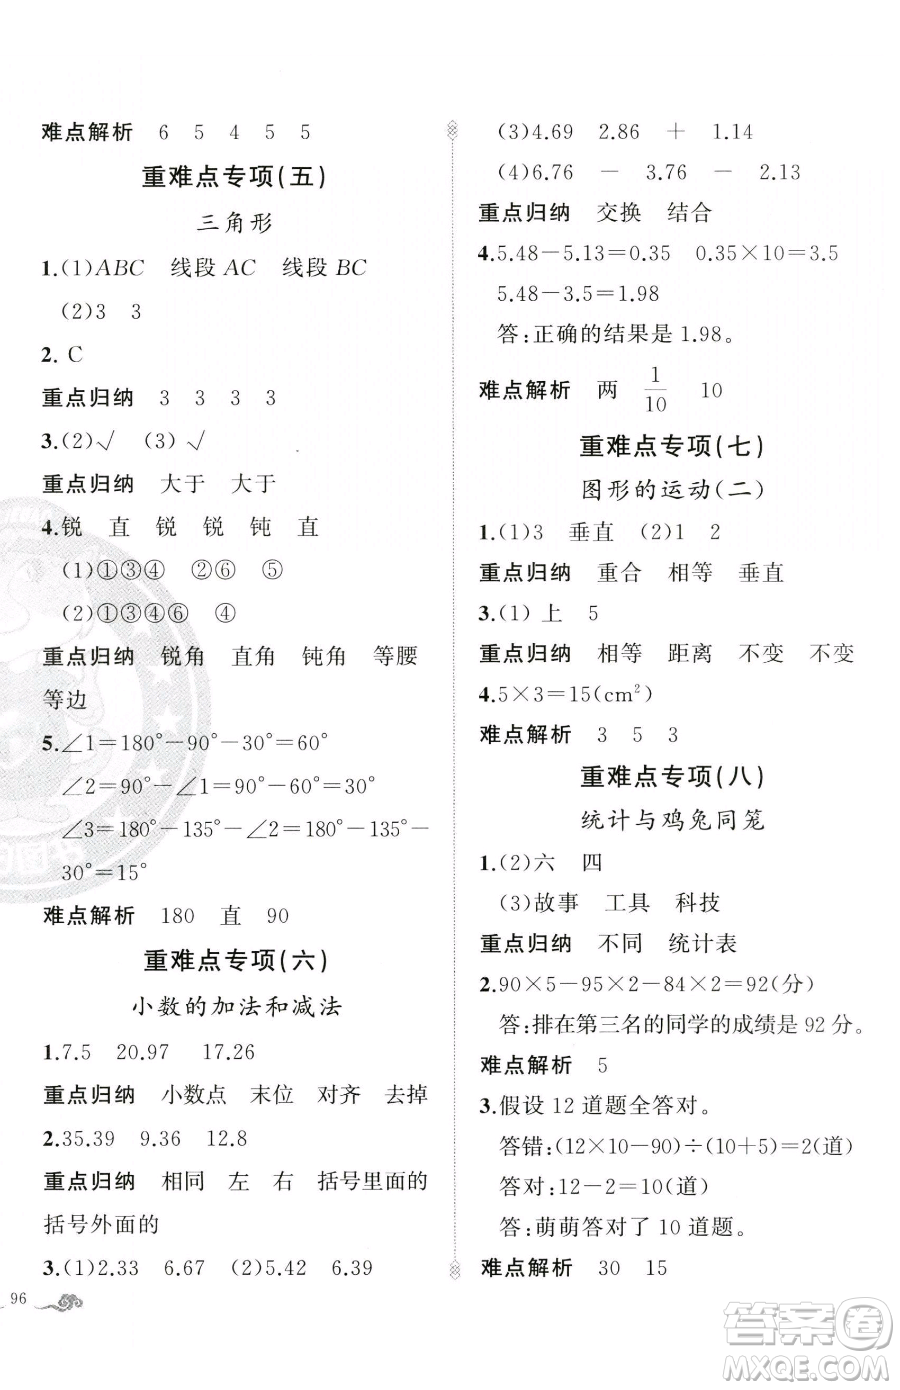 难点解析 6 5 4 5 5
重难点专项(五)
三角形
1.(1)ABC 线段 AC 线段 BC
(2)3 3
2. C
重点归纳 3 3 3 3
3.(2)√ (3)√
重点归纳 大于 大于
4.锐 直 锐 锐 钝 直
(1)①③④ ②⑥ ⑤
(2)①③④⑥ ④
重点归纳 锐角 直角 钝角 等腰
等边
5.∠1=180°-90°-30°=60°
∠2=90°-∠1=90°-60°=30°
∠3=180°-135°-∠2=180°-135°-
30°=15°
难点解析 180 直 90
重难点专项(六)
小数的加法和减法
1.7.5 20.97 17.26
重点归纳 小数点 末位 对齐 去掉
2.35.39 9.36 12.8
重点归纳 相同 左 右 括号里面的
括号外面的
3.(1)2.33 6.67 (2)5.42 6.39
96
(3)4.69 2.86 + 1.14
(4)6.76 - 3.76 - 2.13
重点归纳 交换 结合
4.5.48-5.13=0.35 0.35×10=3.5
5.48-3.5=1.98
答:正确的结果是 1.98。
难点解析 两 1/10 10
重难点专项(七)
图形的运动(二)
1.(1)3 垂直 (2)1 2
重点归纳 重合 相等 垂直
3.(1)上 5
重点归纳 相等 距离 不变 不变
4.5×3=15(cm²)
难点解析 3 5 3
重难点专项(八)
统计与鸡兔同笼
1.(2)六 四
(3)故事 工具 科技
重点归纳 不同 统计表
2.90×5-95×2-84×2=92(分)
答:排在第三名的同学的成绩是 92 分。
难点解析 5
3.假设 12 道题全答对。
答错:(12×10-90)÷(10+5)=2(道)
答对:12-2=10(道)
答:萌萌答对了 10 道题。
难点解析 30 15
答案圈
MXQE.COM